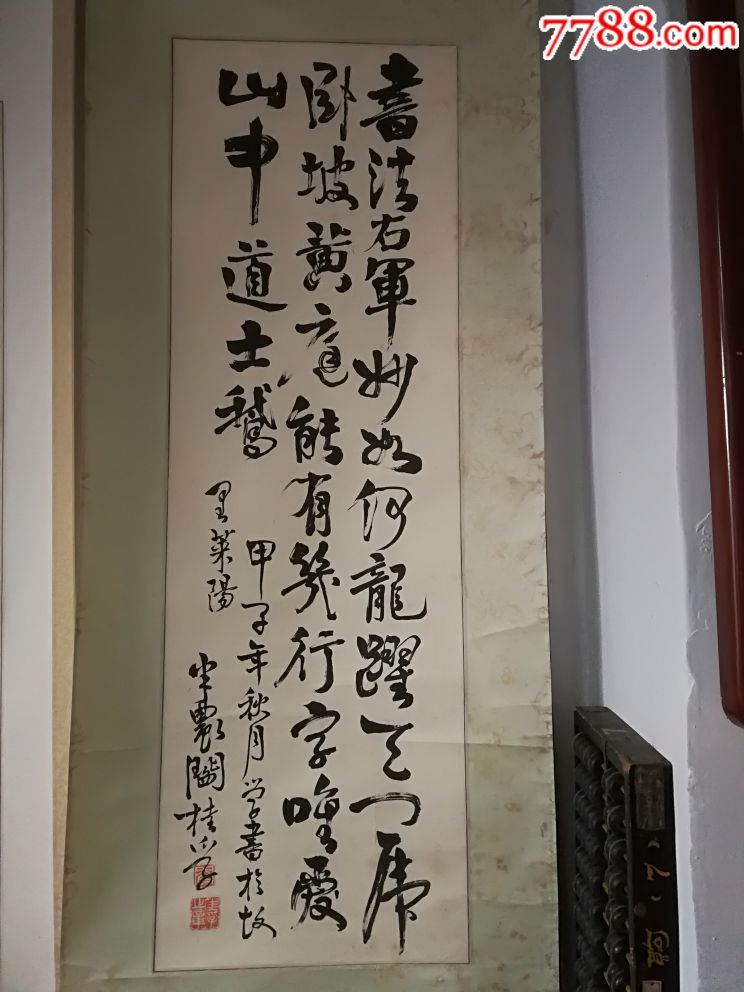 7788.com
書法右軍妙如何龍躍天門虎
卧坡黄庭能有幾行字唯愛
山中道士鵝
甲子年秋月学書於故
里莱陽
半農閻桂